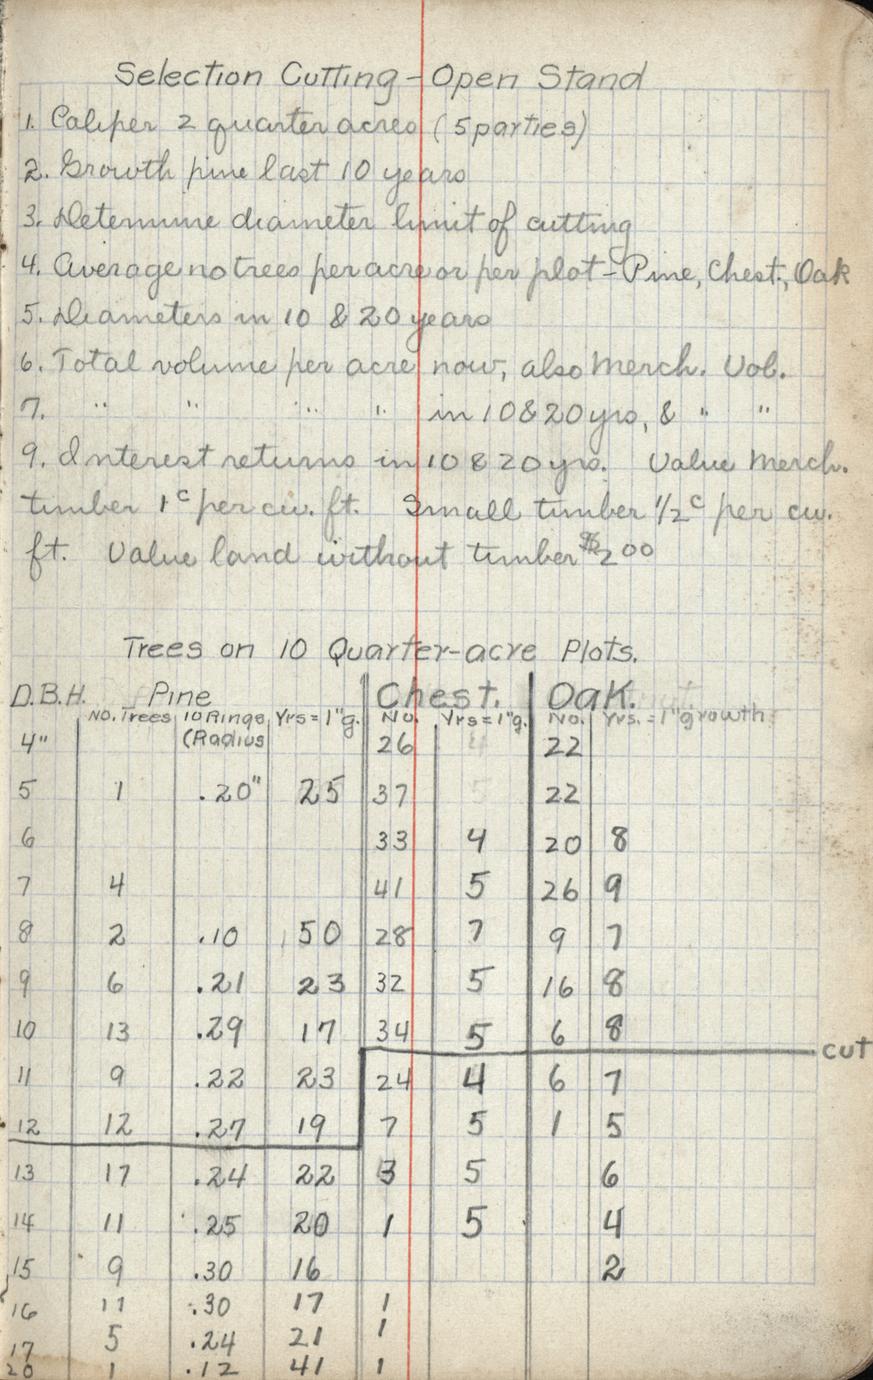 Selection Cutting - Open Stand
1. Caliper 2 quarter acres (5 parties)
2. Growth pine last 10 years
3. Determine diameter limit of cutting
4. Average no trees per acre or per plot - Pine, Chest., Oak
5. Diameters in 10 & 20 years
6. Total volume per acre now, also Merch. Vol.
7. " " " " in 10 & 20 yrs, & " "
9. Interest returns in 10 & 20 yrs. Value Merch.
timber 1c per cu. ft. Small timber 1/2c per cu.
ft. Value land without timber $2 00
Trees on 10 Quarter-acre Plots.
D.B.H. Pine Chest. Oak.
No. Trees 10 Rings Yrs=1"g. No. Yrs=1"g. No. Yrs.=1"growth
4" (Radius 26 4 22
5 1 .20" 25 37 5 22
6 33 4 20 8
7 4 41 5 26 9
8 2 .10 50 28 7 9 7
9 6 .21 23 32 5 16 8
10 13 .29 17 34 5 6 8
cut
11 9 .22 23 24 4 6 7
12 12 .27 19 7 5 1 5
13 17 .24 22 3 5 6
14 11 .25 20 1 5 4
15 9 .30 16 2
16 11 .30 17 1
17 5 .24 21 1
20 1 .12 41 1